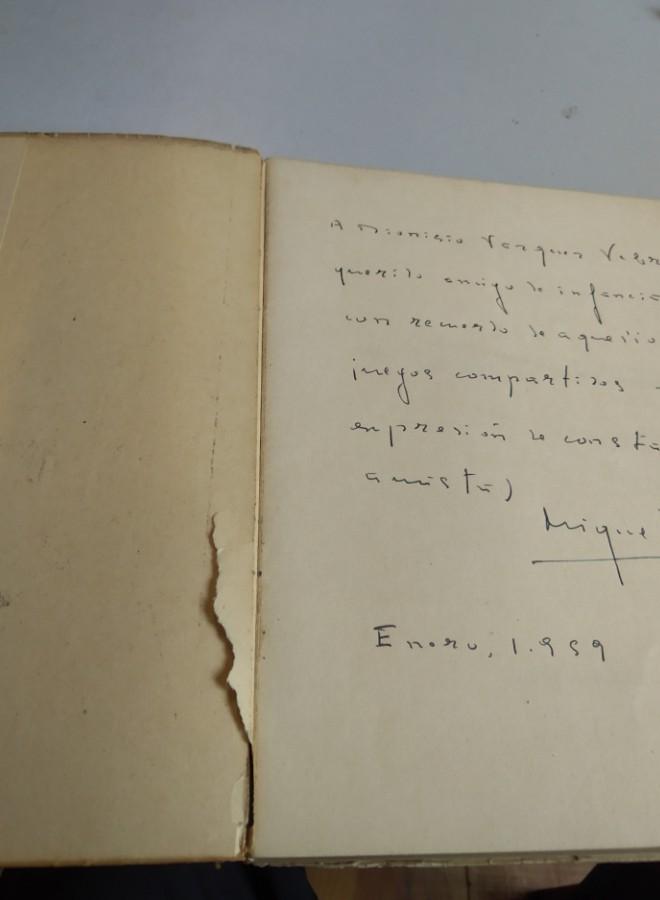 A Dionisio Vazquez
querido amigo de infancia
con recuerdo de aquellos
juegos compartidos
expresión de
amistad
Migue
Enero, 1.959